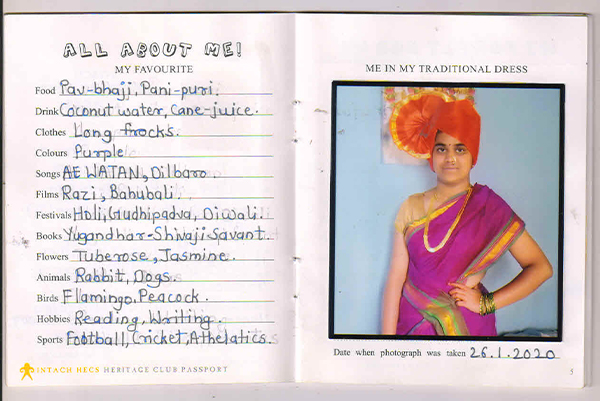 ALL ABOUT ME!
MY FAVOURITE
Food Pav-bhajj, Pani-puri.
Drink Coconut water, Cane-juice.
Clothes Long frocks.
Colours Purple
Songs AE WATAN, Dilbaro
Films Razi, Bahubali.
Festivals Holi, Gudhipadva, Diwali.
Books Yugandhar-Shivaji Savant.
Flowers Tuberose, Jasmine.
Animals Rabbit, Dogs.
Birds Flamingo, Peacock.
Hobbies Reading, Writing.
Sports Football, Cricket, Athelatics.
INTACH HECS HERITAGE CLUB PASSPORT
ME IN MY TRADITIONAL DRESS
Date when photograph was taken 26.1.2020